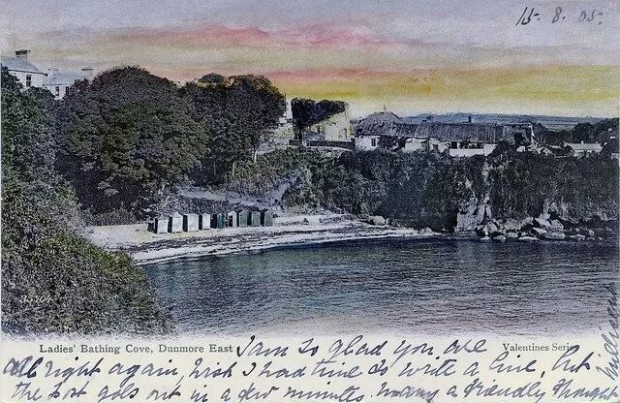 15-8-05
Ladies' Bathing Cove, Dunmore East
Valentines Series
I am so glad you are
all right again, wish I had time to write a line, but
the post goes out in a few minutes. many a friendly thought